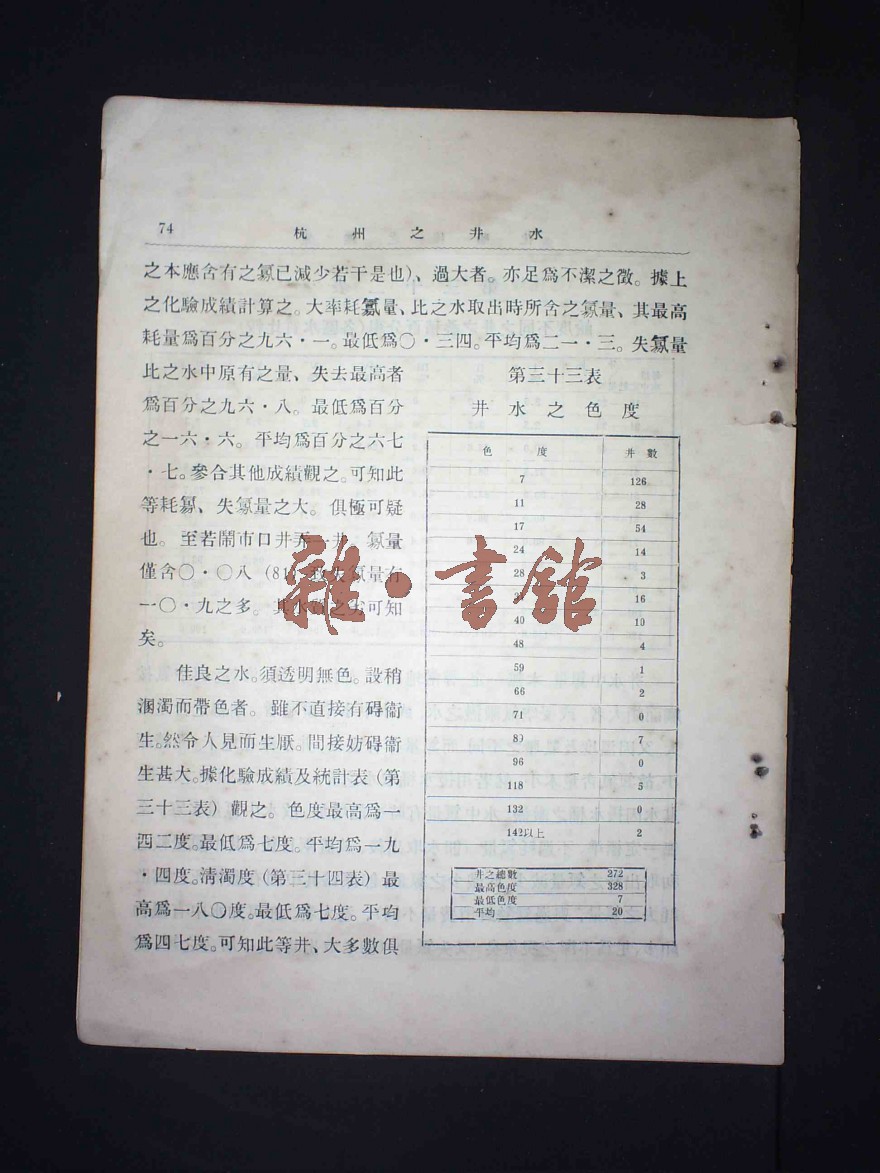 74 杭州之井水
之本應含有之氯已減少若干是也)、過大者。亦足爲不潔之徵。據上
之化驗成績計算之。大率耗氯量、比之水取出時所含之氯量、其最高
耗量爲百分之九六·一。最低爲〇·三四。平均爲二一·三。失氯量
比之水中原有之量、失去最高者
爲百分之九六·八。最低爲百分
之一六·六。平均爲百分之六七
·七。參合其他成績觀之。可知此
等耗氯、失氯量之大。俱極可疑
也。至若鬧市口井弄一井。氯量
僅含〇·〇八(81)失氯量有
一〇·九之多。其水之劣可知
矣。
佳良之水。須透明無色。設稍
溷濁而帶色者。雖不直接有碍衞
生。然令人見而生厭。間接妨碍衞
生甚大。據化驗成績及統計表(第
三十三表)觀之。色度最高爲一
四二度。最低爲七度。平均爲一九
·四度。清濁度(第三十四表)最
高爲一八〇度。最低爲七度。平均
爲四七度。可知此等井、大多數俱
第三十三表
井水之色度
色度 井數
7 126
11 28
17 54
24 14
28 3
16
40 10
48 4
59 1
66 2
71 0
89 7
96 0
118 5
132 0
142以上 2
井之總數 272
最高色度 328
最低色度 7
平均 20
雜·書館